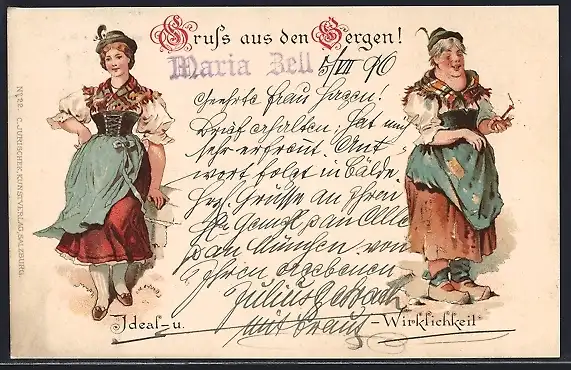 Gruß aus den Bergen!
Maria Zell 5/VII 96
Geehrte Frau Hagen!
Brief erhalten, hat mich
sehr erfreut. Ant-
wort folgt in Bälde.
Herzl. Grüsse an Ihren
Hr. Gemahl, an Alle
von
Ihren ergebenen
Julius
mit Braut
Ideal- u. -Wirklichkeit
No 22. C. JURISCHEK, KUNSTVERLAG, SALZBURG.